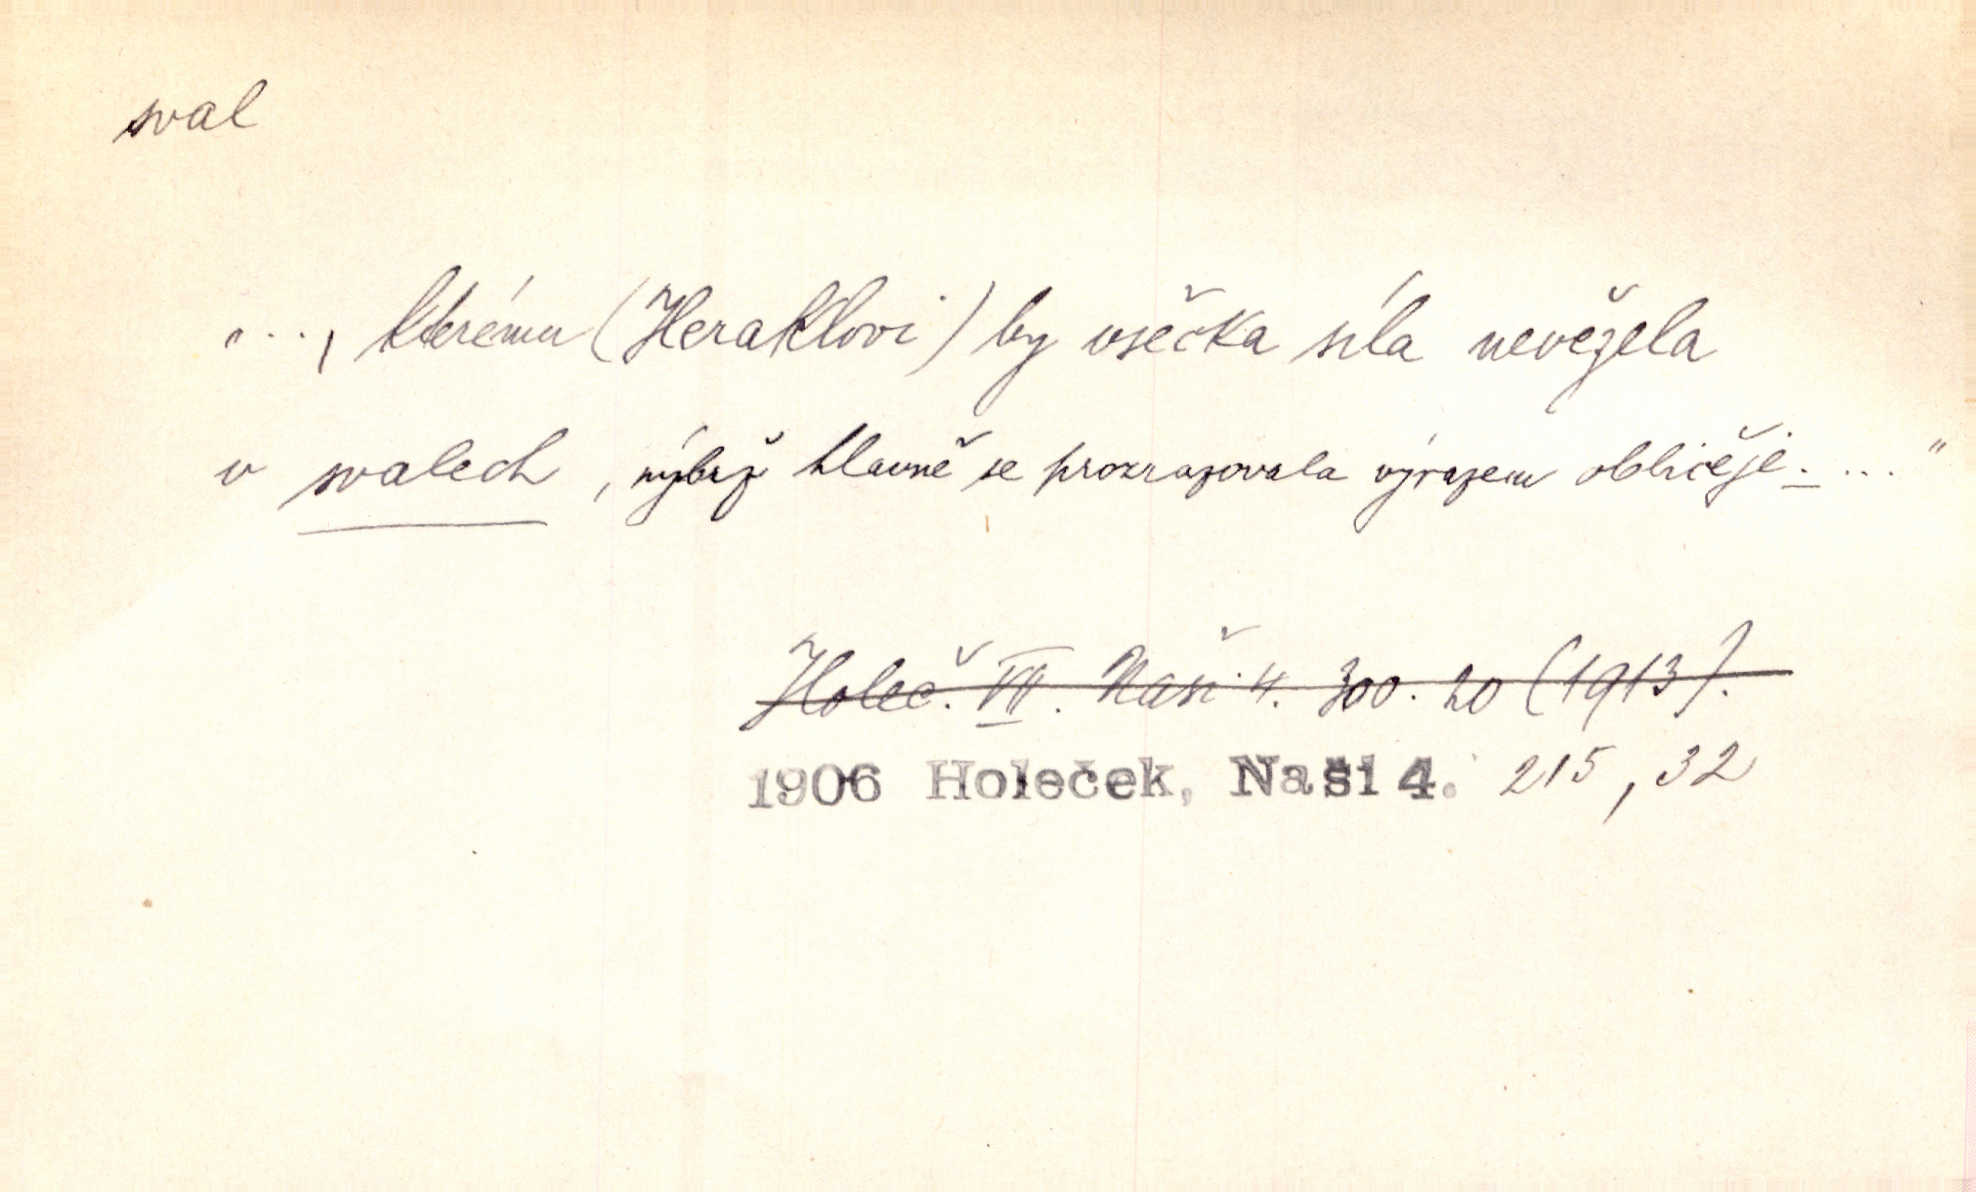 sval
..., kterému (Heraklovi) by všečka síla nevězela
v svalech, nýbrž hlavně se prozrazovala výrazem obličeje. ..."
Holeč. VII. Naši 4. 300. 20 (1913).
1906 Holeček, Naši 4. 215, 32